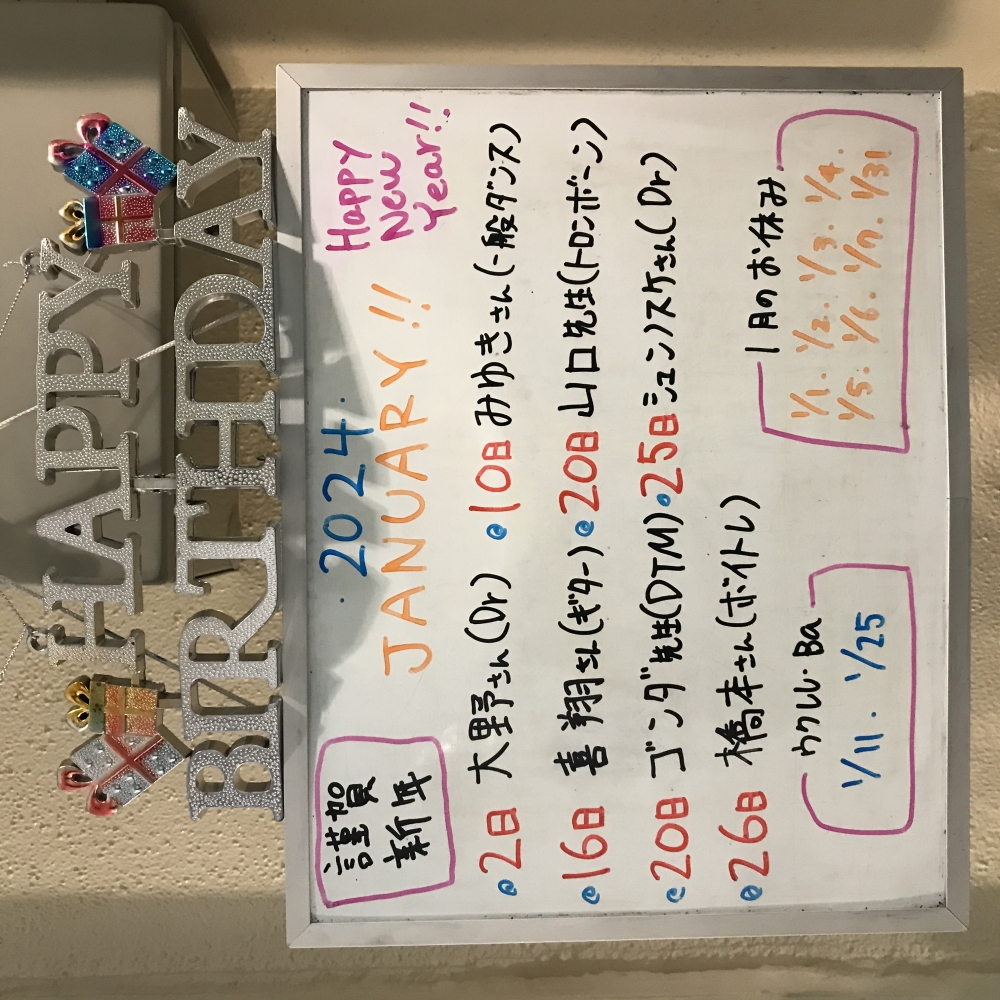 HAPPY
BIRTHDAY
謹賀
新年
・2024.
JANUARY!!
Happy
New
Year!!
2日 大野さん(Dr)
10日 みゆきさん(一般ダンス)
16日 喜翔さん(ギター)
20日 山口先生(トロンボーン)
20日 ゴンダ先生(DTM)
25日 シュンスケさん(Dr)
26日 橋本さん(ボイトレ)
ウクレレ・Ba
1/11. 1/25
1月のお休み
1/1. 1/2. 1/3. 1/4.
1/5. 1/6. 1/7. 1/31